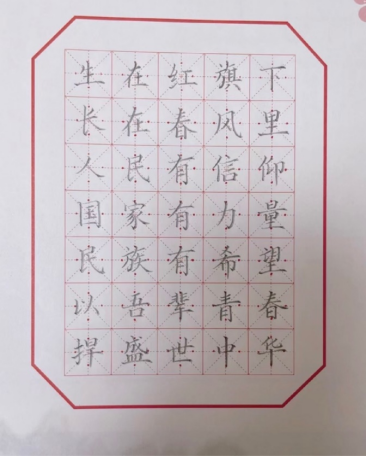 生在红旗下
长在春风里
人民有信仰
国家有力量
民族有希望
以吾辈青春
捍盛世中华